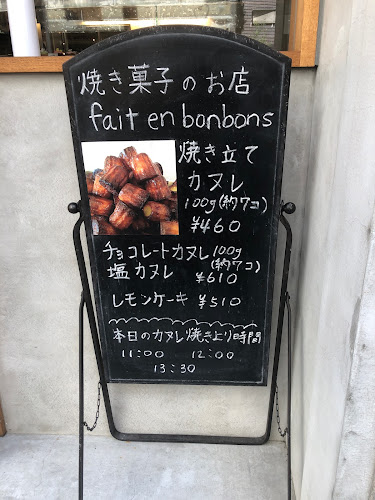 焼き菓子のお店
fait en bonbons
焼き立て
カヌレ
100g(約7コ)
¥460
チョコレートカヌレ 100g
塩カヌレ (約7コ)
¥610
レモンケーキ ¥510
本日のカヌレ焼き上り時間
11:00 12:00
13:30